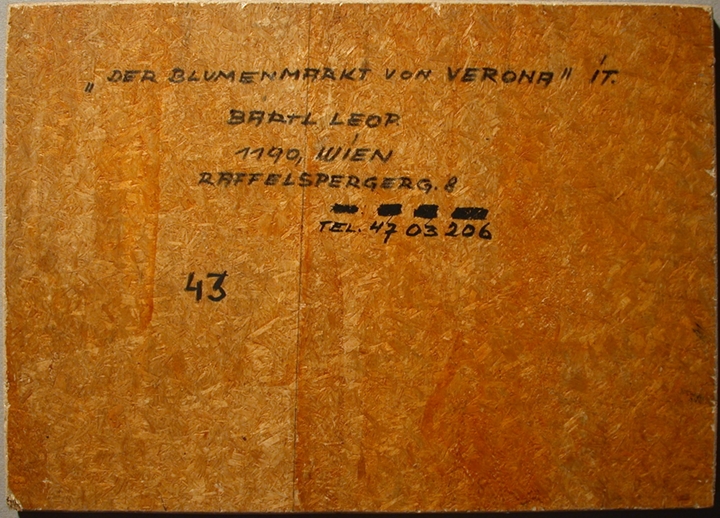 „DER BLUMENMARKT VON VERONA" IT.
BARTL LEOP.
1190, WIEN
RAFFELSPERGERG. 8
TEL. 47 03 206
43